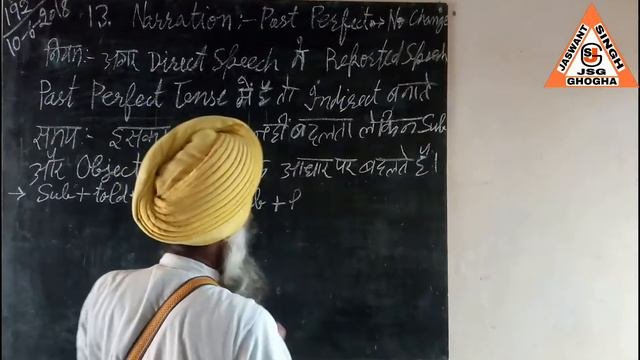 192
10-6-2018
13. Narration:- Past Perfect → No Change
नियम:- अगर Direct Speech में Reported Speech
Past Perfect Tense में है तो Indirect बनाते
समय:- नहीं बदलता लेकिन Sub
और Object आधार पर बदलते हैं।
→ Sub + told +
JASWANT SINGH
JSG
GHOGHA